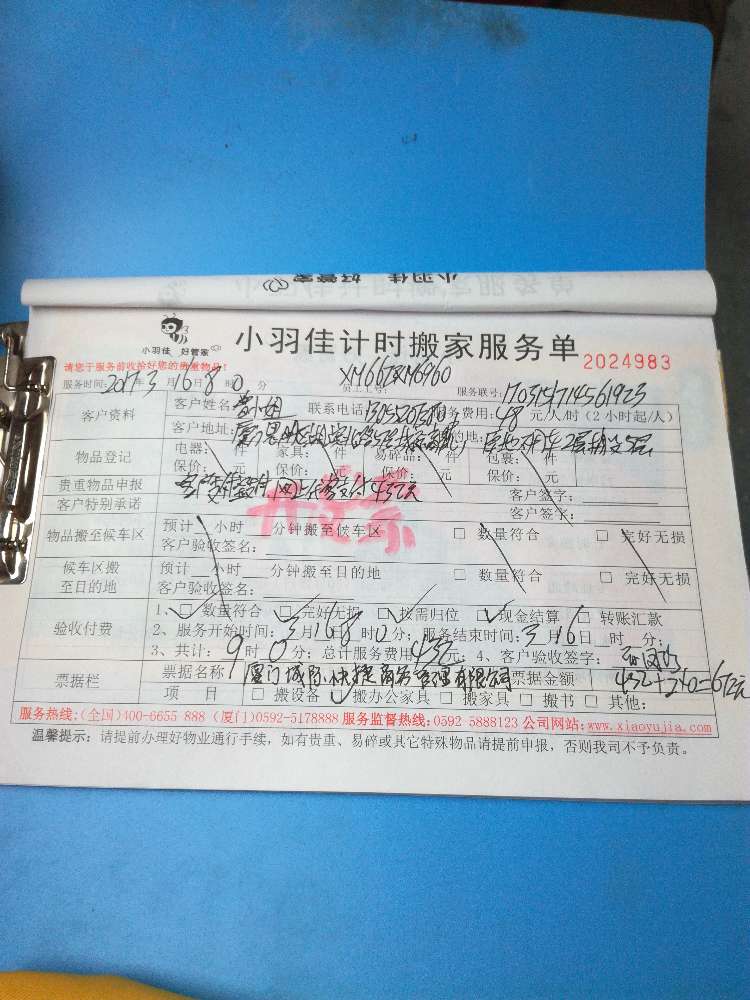 小羽佳 好管家
小羽佳 好管家
小羽佳计时搬家服务单 2024983
请您于服务前收拾好您的贵重物品！
服务时间:2017年3月16日8时0分 员工七号: 服务联号:
客户资料 客户姓名: 小姐 联系电话 服务费用:48元/人/时(2小时起/人)
客户地址: 目的地:
物品登记 电器: 件 家具: 件 易碎品: 件 包裹: 件
保价: 元 保价: 元 保价: 元 保价: 元
贵重物品申报 网上 支付432元 客户签字:
客户特别承诺 客户签字:
开过票
物品搬至候车区 预计__小时__分钟搬至候车区 □ 数量符合 □ 完好无损
客户验收签名:
候车区搬至目的地 预计__小时__分钟搬至目的地 □ 数量符合 □ 完好无损
客户验收签名:
验收付费 1、□ 数量符合 □ 完好无损 □ 按需归位 □ 现金结算 □ 转账汇款
2、服务开始时间:3月16日8时0分; 服务结束时间:3月16日 时 分;
3、共计:9时0分; 总计服务费用432元; 4、客户验收签字:
票据栏 票据名称 厦门城际快捷商务管理有限公司 票据金额 432+240=672元
项 目 □ 搬设备 □ 搬办公家具 □ 搬家具 □ 搬书 □ 其他:
服务热线:(全国)400-6655 888 (厦门)0592-5178888 服务监督热线:0592 5888123 公司网站:www.xiaoyujia.com
温馨提示: 请提前办理好物业通行手续，如有贵重、易碎或其它特殊物品请提前申报，否则我司不予负责。